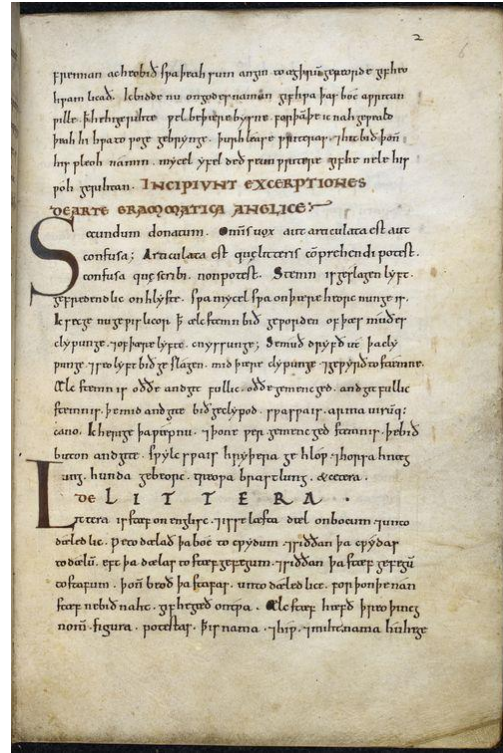 fremman ac heo bið sƿa þeah sum angin to ægþrum gereorde gif heo
hƿam licað. Ic bidde nu on godes naman gif hƿa þas boc aƿritan
ƿille. þ he hi gerihte ƿel be þære bysne. forþā þe ic nah geƿeald
þeah hi hƿa to ƿoge gebrynge. þurh lease ƿriteras. ⁊ hit bið þoñ
his pleoh na min. mycel yfel deð se unƿritere gif he nele his
ƿoh gerihtan. INCIPIVNT EXCERPTIONES
DE ARTE GRAMMATICA ANGLICE
Secundum donatum. Omñis uox aut articulata est aut
confusa; Articulata est quę litteris cōprehendi potest.
confusa quę scribi non potest. Stemn is geslagen lyft.
gefredendlic on hlyste. sƿa mycel sƿa on þære heorcnunge is.
Ic secge nu gesƿislicor þ ælc stemn bið geƿorden of þæs muðes
clypunge. ⁊ of þære lyfte cnyssunge; Se muð dryfð ut þa cly
punge. ⁊ seo lyft bið geslagen mid þære clypunge ⁊ geƿyrð to stemne.
Ælc stemn is oððe andgitfullic. oððe gemenced. andgitfullic
stemn is. þe mid andgite bið geclypod. sƿa sƿa is. arma uirūq;
cano. Ic herige þa ƿæpnu. ⁊ þone ƿer. gemenced stemn is. þe bið
buton andgite. sƿylc sƿa is hryþera gehloƿ. ⁊ horsa hnæg
ung. hunda gebeorc. treoƿa brastlung. & cetera.
DE LITTERA.
Littera is stæf on englisc. ⁊ is se læsta dæl on bocum. ⁊ unto
dæledlic. Ƿe todælað þa boc to cƿydum. ⁊ siððan þa cƿydas
to dælū. eft þa dælas to stæfgefegum. ⁊ siððan þa stæfgefegū
to stafum. þoñ beoð þa stafas. untodæledlice. for þon þe nan
stæf ne bið naht. gif he gæð on tƿa. Ælc stæf hæfð þreo þing
nom̄. figura. potestas. þ is nama. ⁊ hiƿ. ⁊ miht. nama hu he ge